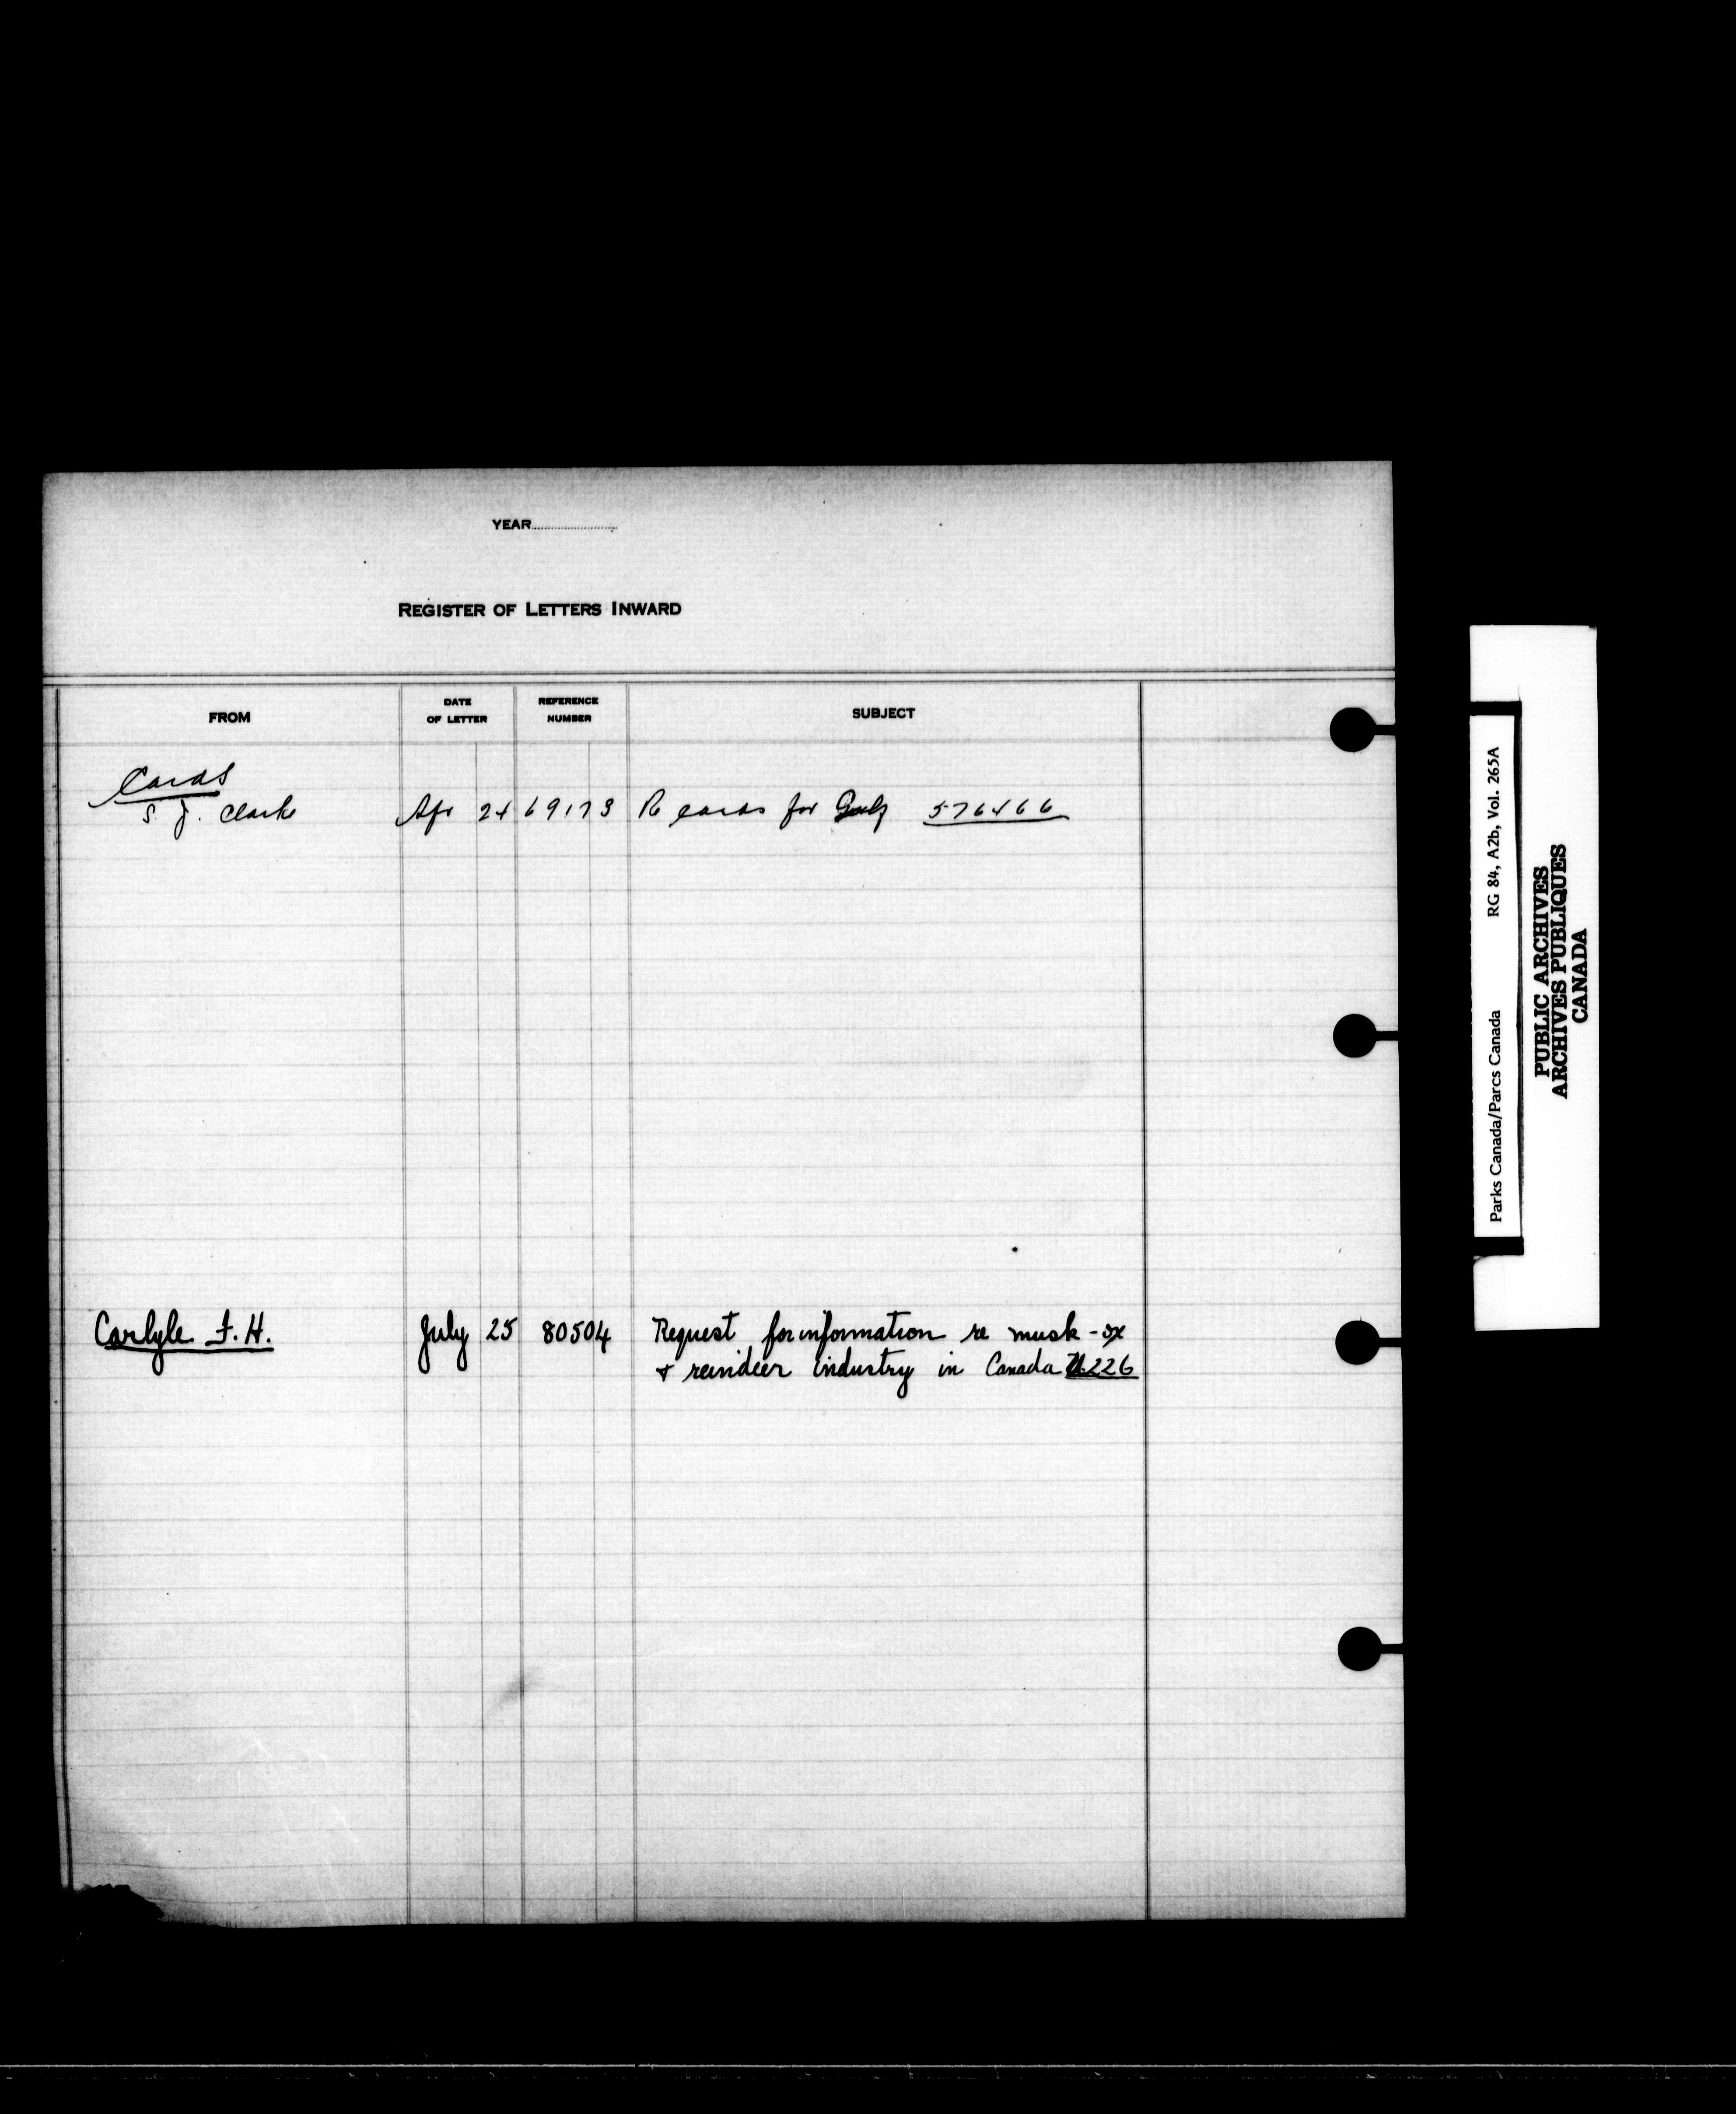 YEAR
REGISTER OF LETTERS INWARD
FROM DATE OF LETTER REFERENCE NUMBER SUBJECT
Cards
S. J. Clark Apr 24 69173 Re cards for Golf 576466
Carlyle F. H. July 25 80504 Request for information re musk-ox
& reindeer industry in Canada U.226
Parks Canada/Parcs Canada RG 84, A2b, Vol. 265A
PUBLIC ARCHIVES
ARCHIVES PUBLIQUES
CANADA